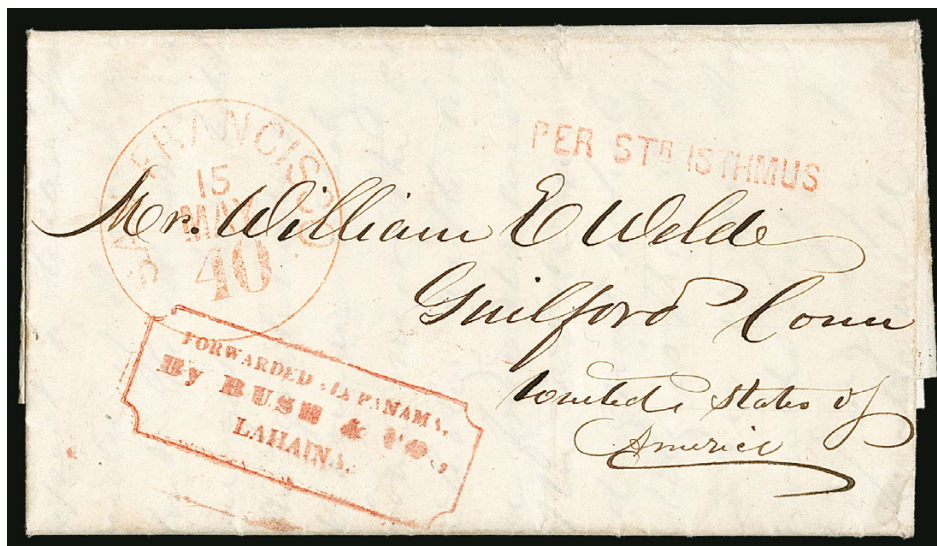 SAN FRANCISCO
15
MAY
40
PER STR ISTHMUS
Mr. William E Welde
Guilford Conn
United States of
America
FORWARDED VIA PANAMA,
By BUSH & Co.,
LAHAINA.